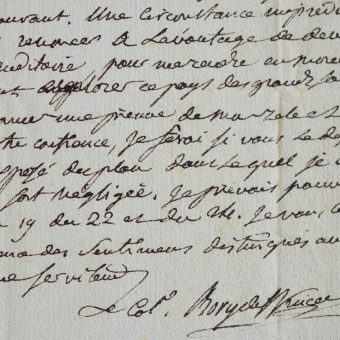 ouvant. Une circonstance imprévu
renoncer à l'avantage de deve
pour me rendre en moré
explorer ce pays des grands so
une preuve de mon zele et
confiance, je serai si vous le de
exposé du plan dans lequel je
fort négligée. je prevois pouv
19 du 22 et du 24. Je vous
des sentimens distingués au
ne serviteur
Le Col. Bory de St Vincent